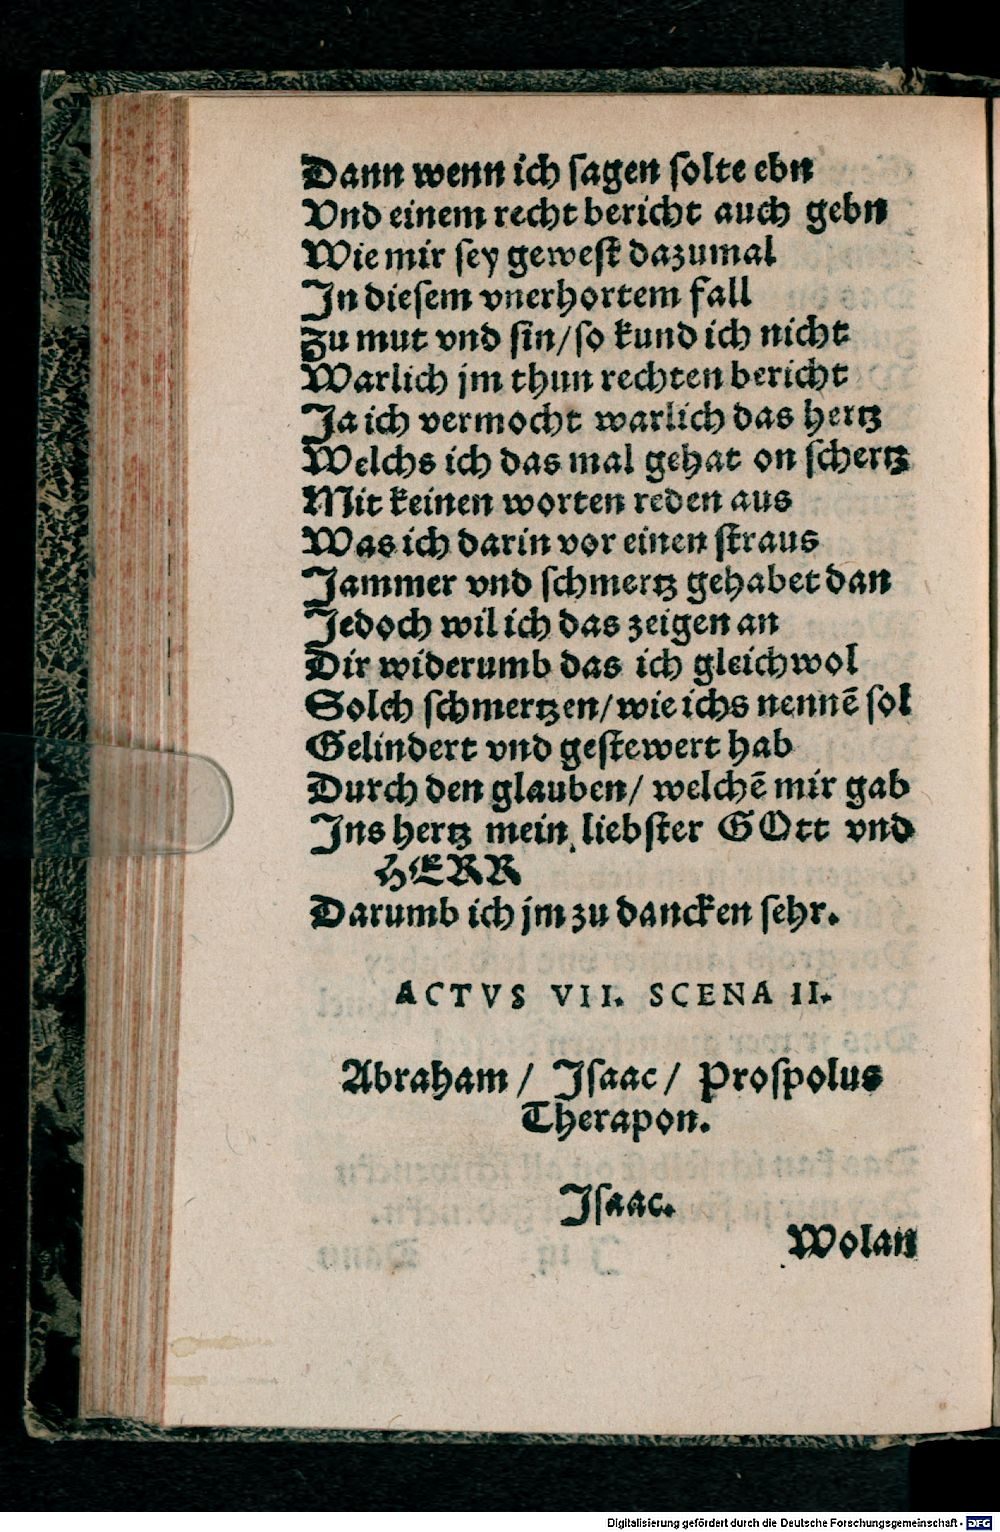 Dann wenn ich sagen solte ebn
Vnd einem recht bericht auch gebn
Wie mir sey gewest dazumal
In diesem vnerhortem fall
Zu mut vnd sin/so kund ich nicht
Warlich jm thun rechten bericht
Ja ich vermocht warlich das hertz
Welchs ich das mal gehat on schertz
Mit keinen worten reden aus
Was ich darin vor einen straus
Jammer vnd schmertz gehabet dan
Jedoch wil ich das zeigen an
Dir widerumb das ich gleichwol
Solch schmertzen/wie ichs nennē sol
Gelindert vnd gestewert hab
Durch den glauben/ welchē mir gab
Ins hertz mein liebster GOtt vnd
HERR
Darumb ich jm zu dancken sehr.
ACTVS VII. SCENA II.
Abraham / Isaac / Prospolus
Therapon.
Isaac.
Wolan
Digitalisierung gefördert durch die Deutsche Forschungsgemeinschaft - DFG